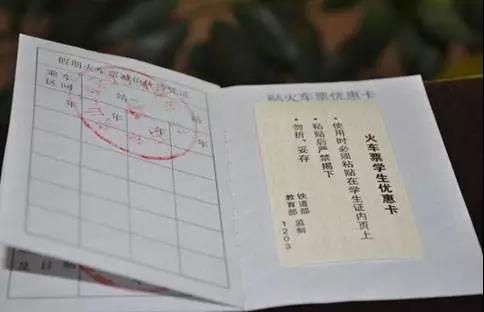 假期火车票减价优待凭证
乘车区间
站
站
年
年
年
年
贴火车票优惠卡
火车票学生优惠卡
• 使用时必须粘贴在学生证内页上
• 粘贴后严禁揭下
• 勿折、妥存
铁道部
教育部
监制
1203